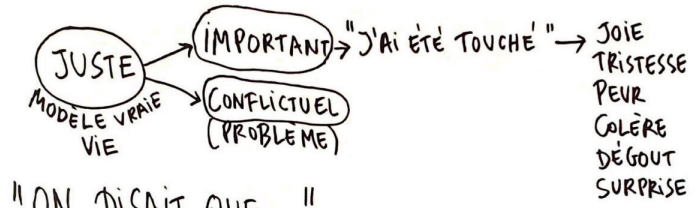 JUSTE
MODÈLE VRAIE
VIE
IMPORTANT
CONFLICTUEL
(PROBLÈME)
"J'AI ÉTÉ TOUCHÉ"
JOIE
TRISTESSE
PEUR
COLÈRE
DÉGOUT
SURPRISE
"ON DISAIT QUE..."